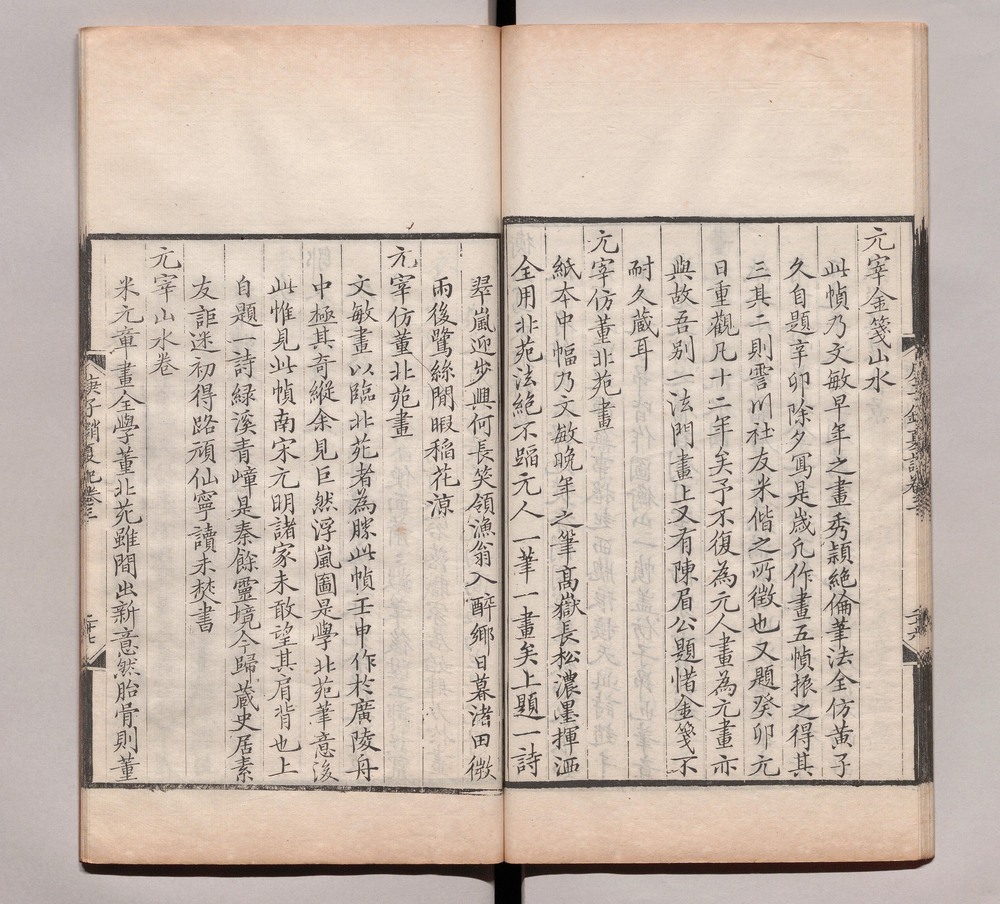 元宰金箋山水
此幀乃文敏早年之畫秀頴絕倫筆法全仿黃子
久自題辛卯除夕寫是歲凡作畫五幀振之得其
三其二則霅川社友米偕之所徵也又題癸卯元
日重觀凡十二年矣予不復為元人畫為元畫亦
與故吾別一法門畫上又有陳眉公題惜金箋不
耐久藏耳
元宰仿董北苑畫
紙本中幅乃文敏晚年之筆高嶽長松濃墨揮洒
全用北苑法絕不蹈元人一筆一畫矣上題一詩
翠嵐迎步興何長笑領漁翁入醉鄉日暮渚田微
雨後鷺絲閒暇稻花涼
元宰仿董北苑畫
文敏畫以臨北苑者為勝此幀壬申作於廣陵舟
中極其奇縱余見巨然浮嵐圖是學北苑筆意後
此惟見此幀南宋元明諸家未敢望其肩背也上
自題一詩綠溪青嶂是秦餘靈境今歸藏史居素
友詎迷初得路頑仙寧讀未焚書
元宰山水卷
米元章畫全學董北苑雖間出新意然胎骨則董
庚子銷夏記卷三